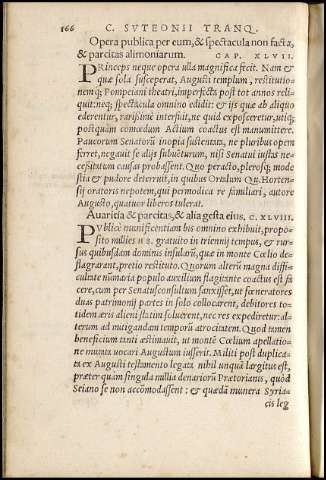 166 C. SVTEONII TRANQ.
Opera publica per eum, & spectacula non facta,
& parcitas alimoniarum. CAP. XLVII.
PRinceps neque opera ulla magnifica fecit. Nam &
quæ sola susceperat, Augusti templum, restitutio-
nemq; Pompeiani theatri, imperfecta post tot annos reli-
quit: neq; spectacula omnino edidit: & ijs quæ ab aliquo
ederentur, rarissime interfuit, ne quid exposceretur, utiq;
postquàm comœdum Actium coactus est manumittere.
Paucorum Senatorũ inopia sustentata, ne pluribus opem
ferret, negauit se alijs subuēturum, nisi Senatui iustas ne-
cessitatum causas probassent. Quo pacto, plerosq; mode
stia & pudore deterruit, in quibus Ortalum Q. Horten-
sij oratoris nepotem, qui permodica re familiari, autore
Augusto, quatuor liberos tulerat.
Auaritia & parcitas, & alia gesta eius, C. XLVIII.
PVblicè munificentiam bis omnino exhibuit, propo-
sito millies H.S. gratuito in triennij tempus, & rur-
sus quibusdam dominis insularũ, quæ in monte Cœlio de-
flagrarant, precio restituto. Quorum alterũ magna diffi-
cultate nũmaria populo auxilium flagitante coactus est fa
cere, cum per Senatusconsultum sanxisset, ut fœneratores
duas patrimonij partes in solo collocarent, debitores to-
tidem æris alieni statim soluerent, nec res expediretur: al-
terum ad mitigandam temporũ atrocitatem. Quod tamen
beneficium tanti æstimauit, ut montē Cœlium appellatio-
ne mutata uocari Augustum iusserit. Militi post duplica-
ta ex Augusti testamento legata nihil unquã largitus est,
præter quàm singula millia denariorũ Prætorianis, quòd
Seiano se non accõmodassent: & quædã munera Syria-
cis leg